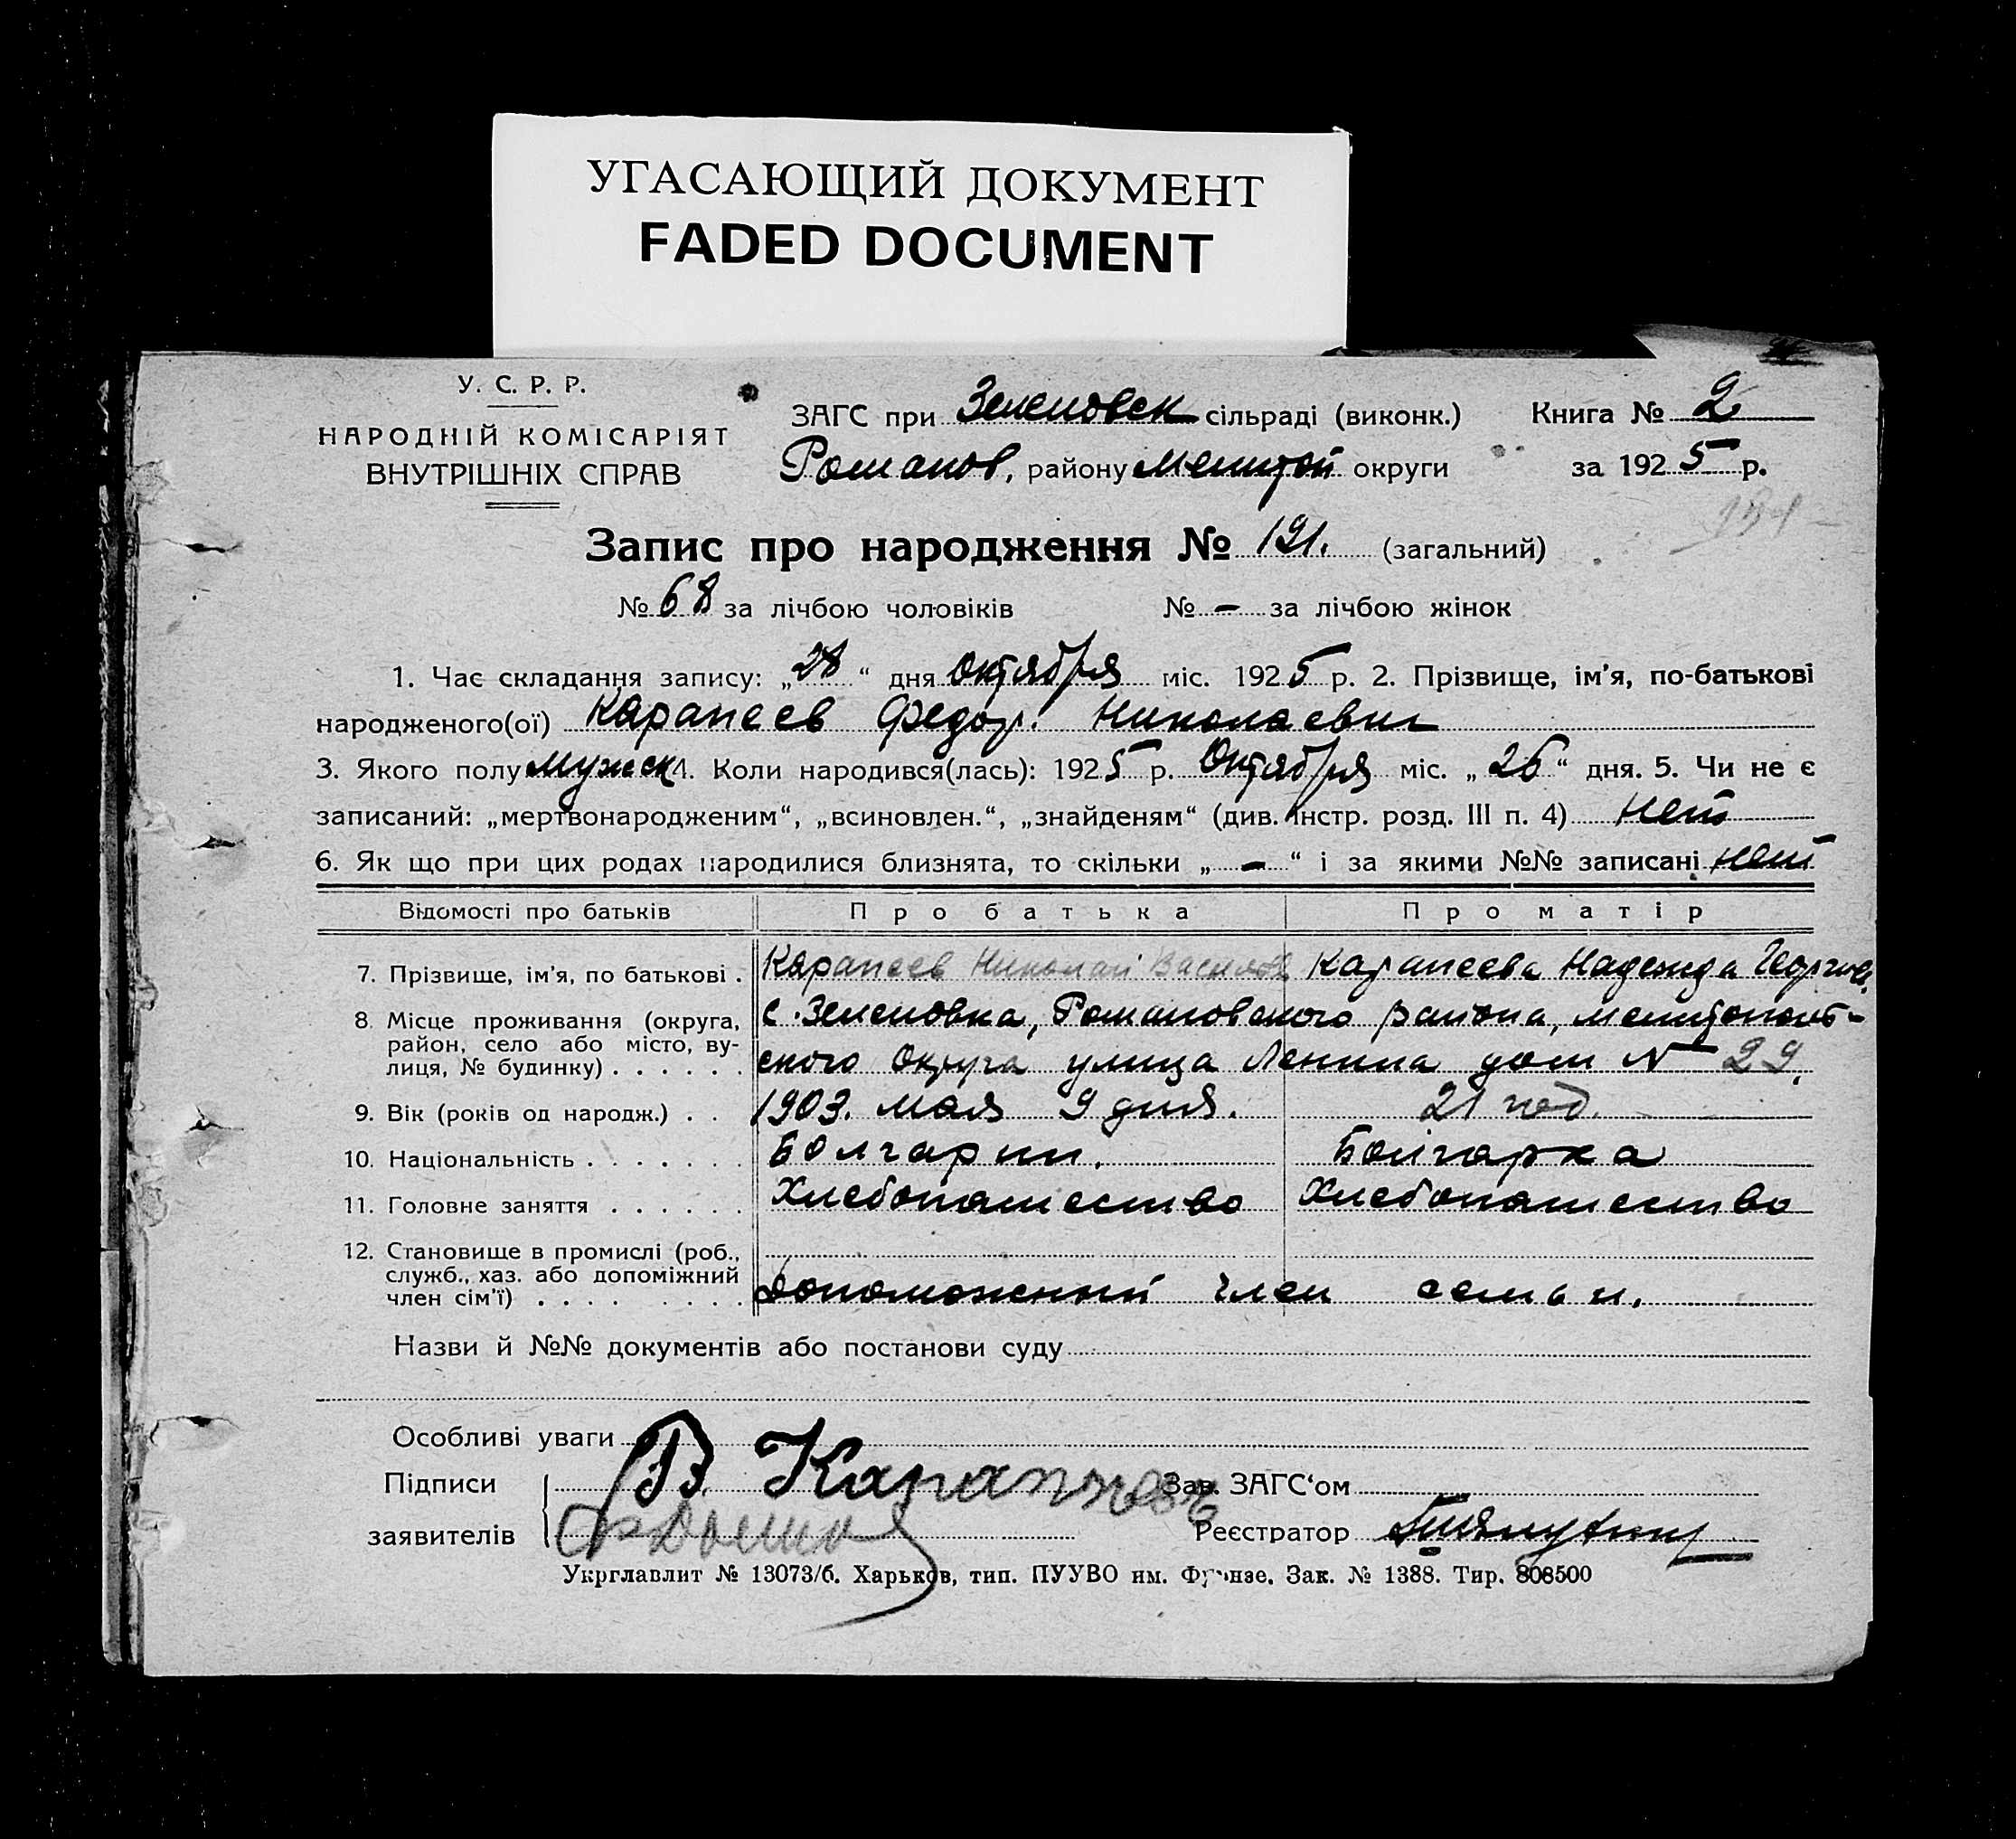 УГАСАЮЩИЙ ДОКУМЕНТ
FADED DOCUMENT
У. С. Р. Р.
НАРОДНІЙ КОМІСАРІЯТ
ВНУТРІШНІХ СПРАВ
ЗАГС при Зеленовск сільраді (виконк.) Книга № 2
Романов. району Мелитой округи за 1925 р.
191
Запис про народження № 191. (загальний)
№ 68 за лічбою чоловіків № - за лічбою жінок
1. Час складання запису: „28“ дня Октября міс. 1925 р. 2. Прізвище, ім'я, по-батькові
народженого(ої) Карапеев Федор. Николаевич
3. Якого полу Мужск 4. Коли народився(лась): 1925 р. Октября міс. „26“ дня. 5. Чи не є
записаний: „мертвонародженим“, „всиновлен.“, „знайденям“ (див. Інстр. розд. III п. 4) Нет
6. Як що при цих родах народилися близнята, то скільки „-“ і за якими №№ записані нет
Відомості про батьків Про батька Про матір
7. Прізвище, ім'я, по батькові . Карапеев Николай Васильев Карапеева Надежда Георгиев.
8. Місце проживання (округа, район, село або місто, вулиця, № будинку) . . . . . .
с. Зеленовка, Романовского района, Мелитопольского Округа улица Ленина дом № 29.
9. Вік (років од народж.) . . 1903. мая 9 дня. 21 год.
10. Національність . . . . . . . Болгарин. Болгарка
11. Головне заняття . . . . . . Хлебопашество Хлебопашество
12. Становище в промислі (роб.,
служб., хаз. або допоміжний
член сім'ї) . . . . . . . . Допоможеный член семьи.
Назви й №№ документів або постанови суду
Особливі уваги
Підписи В Карапчевъ Зав. ЗАГС'ом
заявителів Реєстратор
Укрглавлит № 13073/б. Харьков, тип. ПУУВО им. Фрунзе. Зак. № 1388. Тир. 808500